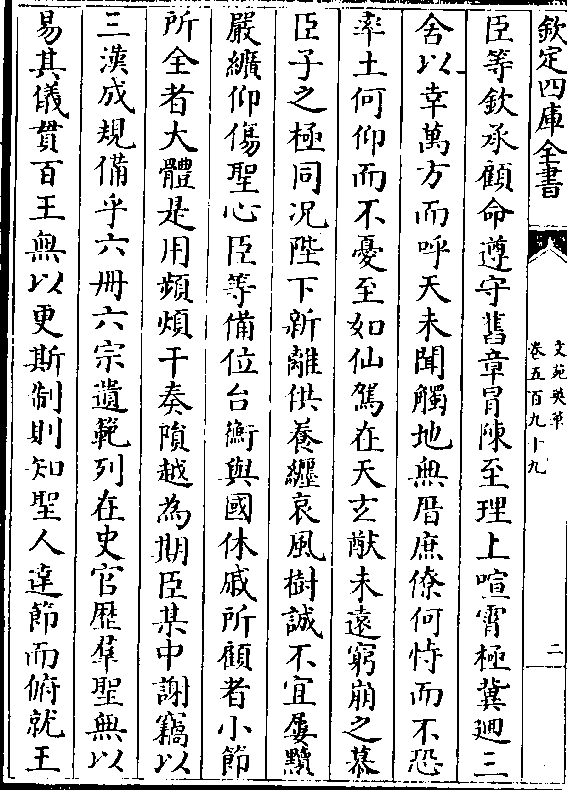 欽定四庫全書
文苑英華
卷五百九十九
二
臣等欽承顧命遵守舊章冒陳至理上喧霄極冀廻三
舍以幸萬方而呼天未聞觸地無厝庶僚何恃而不恐
率土何仰而不憂至如仙駕在天玄猷未遠窮崩之慕
臣子之極同况陛下新離供養纒哀風樹誠不宜屢黷
嚴纊仰傷聖心臣等備位台衡與國休戚所顧者小節
所全者大體是用頻煩干奏隕越為期臣某中謝竊以
三漢成規備乎六冊六宗遺範列在史官歴羣聖無以
易其儀貫百王無以更斯制則知聖人達節而俯就王